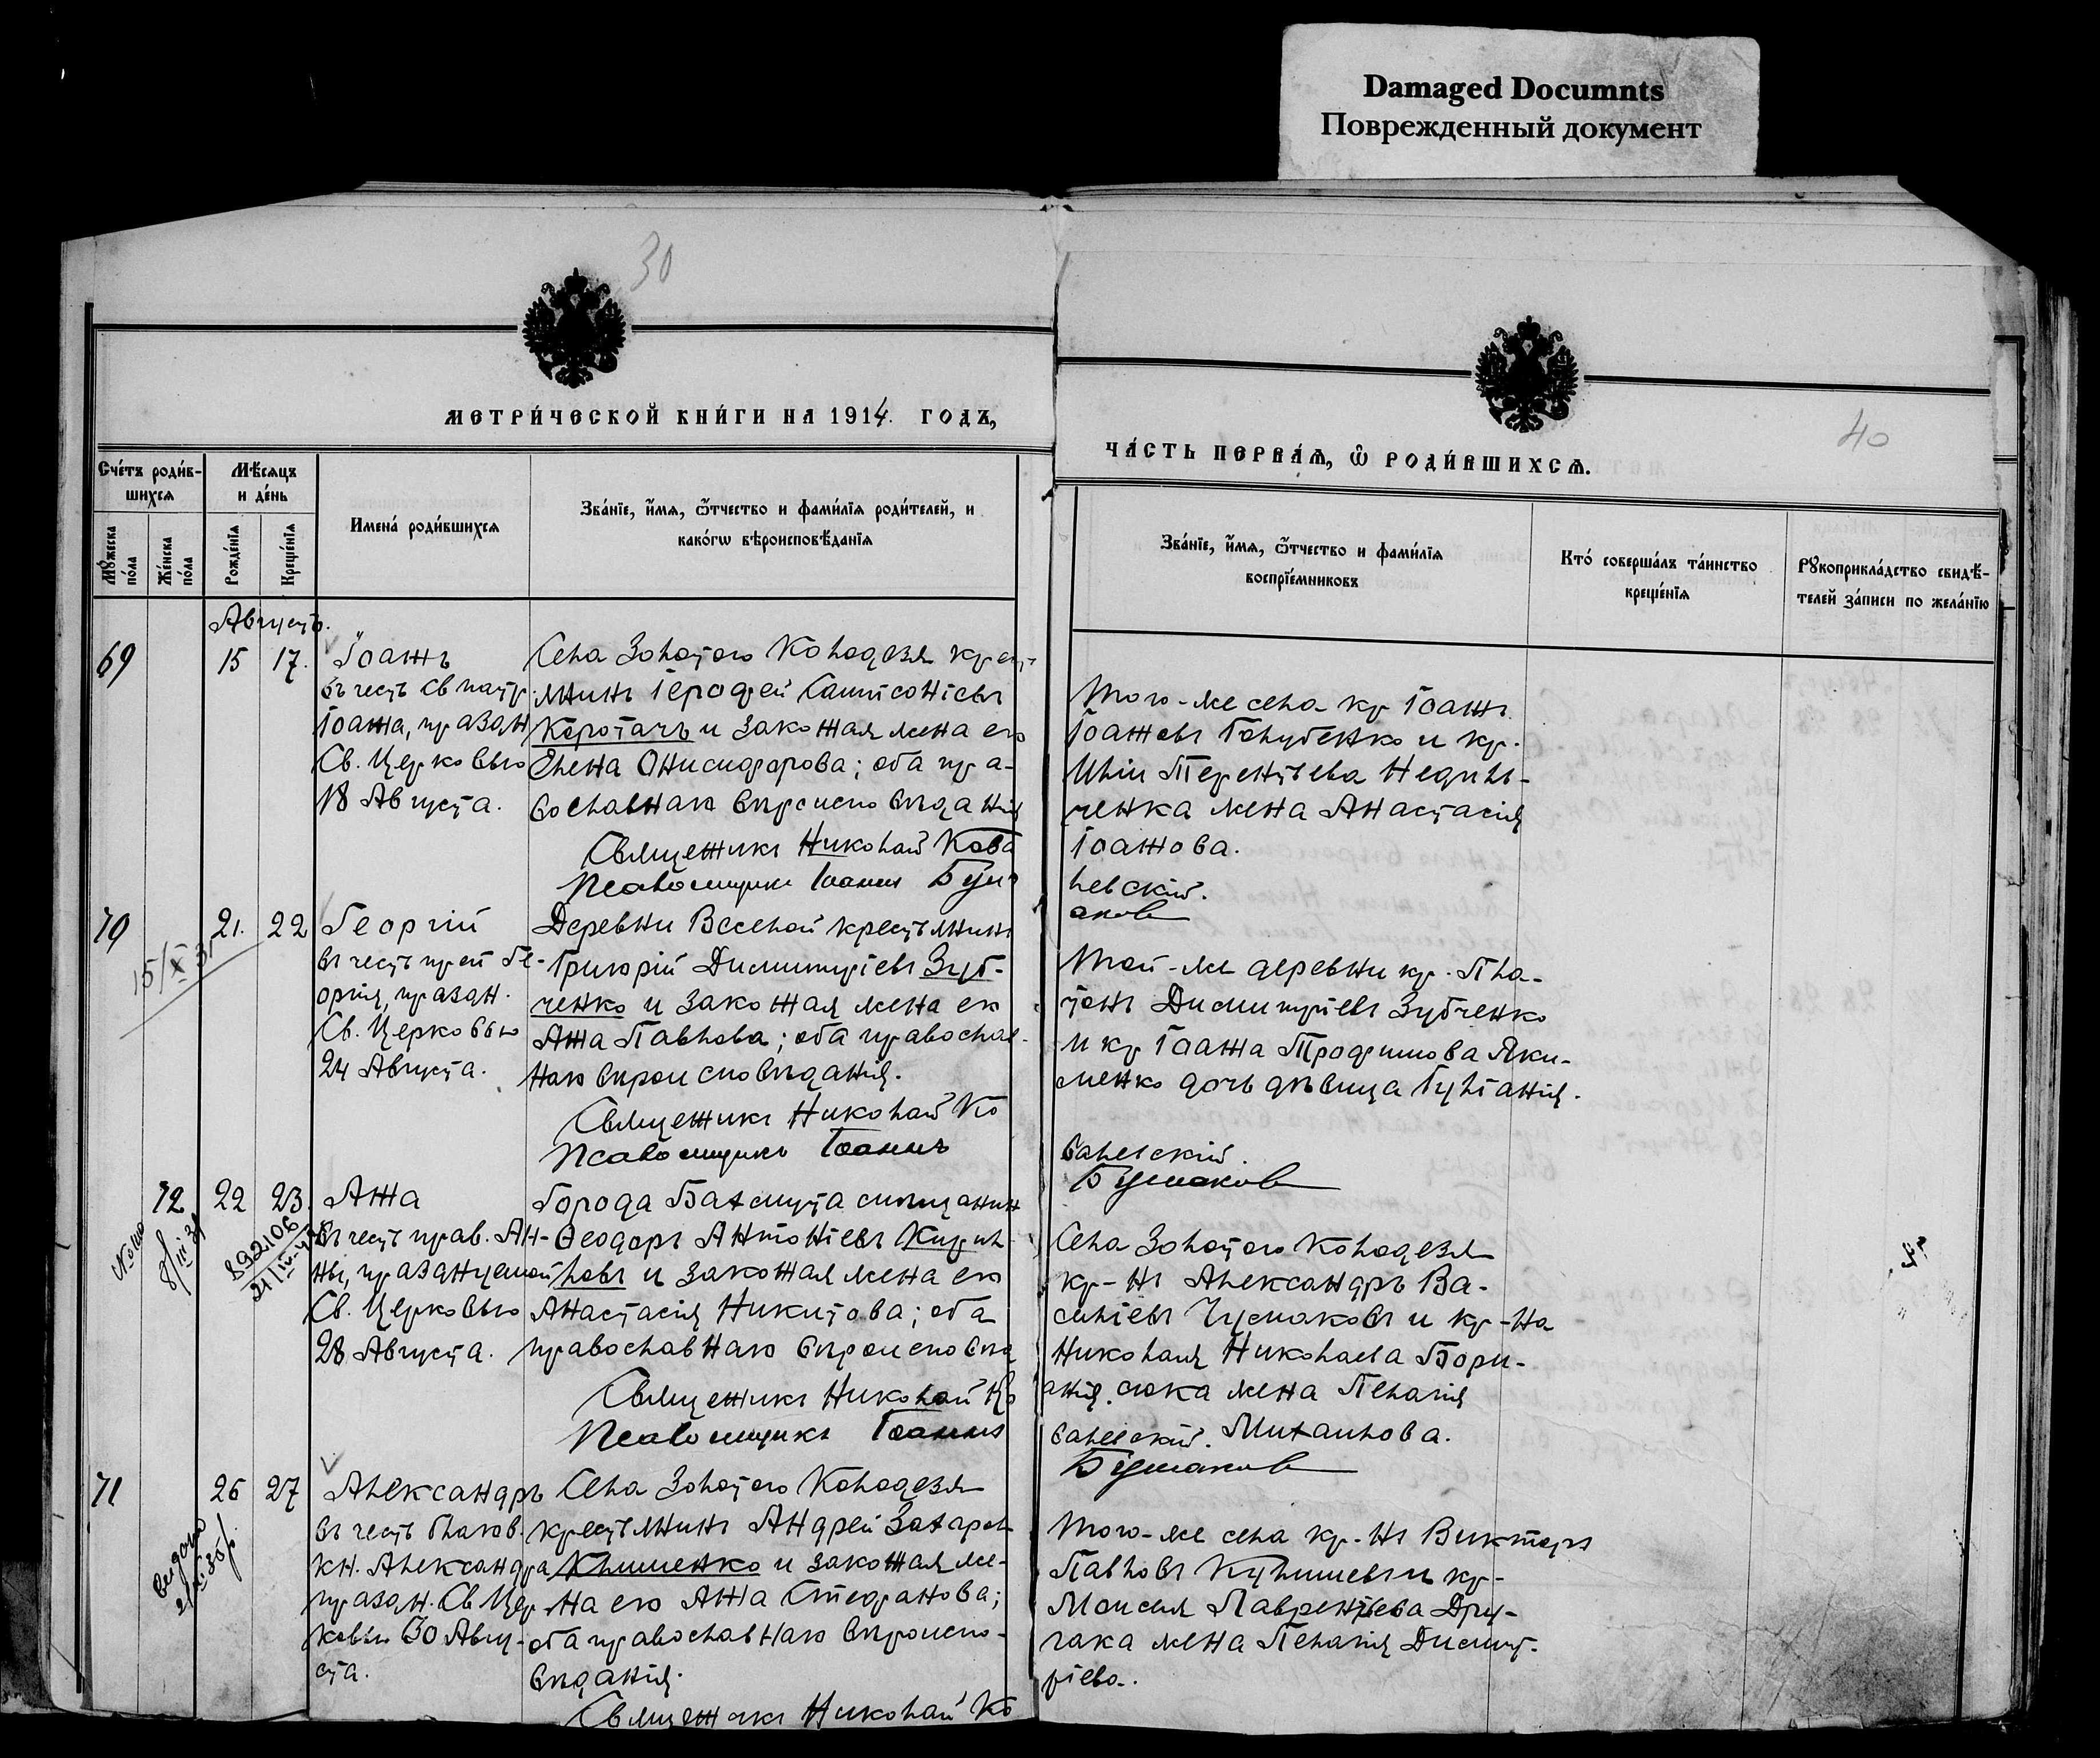 Damaged Documnts
Поврежденный документ
30
МЕТРИ́ЧЕСКОЙ КНИ́ГИ НА 1914 ГОДЪ,
Сче́тъ роди́в-
шихсѧ
Мѣ́сѧцъ
и де́нь
Мꙋ́жеска по́ла
Же́нска по́ла
Рожде́нїѧ
Креще́нїѧ
Имена́ роди́вшихсѧ
Зва́нїе, и́мѧ, ѻ҆́тчество и фами́лїѧ роди́телей, и
како́гѡ вѣроисповѣ́данїѧ
Августъ.
69
15 17.
Іоаннъ
въ честь Св патр.
Іоанна, празан
Св. Церковью
18 Августа.
Села Золотого Колодезя крест-
янинъ Іерофей Сампсоніевъ
Коротачъ и законная жена его
Елена Онисифорова; оба пра-
вославнаго вѣроисповѣданія
Священникъ Николай Кова
Псаломщикъ Іоаннъ Бум
70
15/X 31
21. 22
Георгій
въ честь преп Ге-
оргія, празан.
Св. Церковью
24 Августа.
Деревни Веселой крестьянинъ
Григорій Димитріевъ Зуб-
ченко и законная жена его
Анна Павлова; оба православ-
наго вѣроисповѣданія.
Священникъ Николай Ко
Псаломщикъ Іоаннъ
72
22 23.
8/III 31
892106
21/IV-41
Анна
въ честь прав. Ан-
ны, празануемой
Св. Церковью
28 Августа.
Города Бахмута мѣщанин
Ѳеодоръ Антоніевъ Кирил-
ловъ и законная жена его
Анастасія Никитова; оба
православнаго вѣроисповѣд
Священникъ Николай Ко
Псаломщикъ Іоаннъ
71
26 27
Александръ
въ честь благов.
кн. Александра
празан. Св Цер
ковью 30 Авгу-
ста.
Села Золотого Колодезя
крестьянинъ Андрей Захаров
Клименко и законная же-
на его Анна Стефанова;
оба православнаго вѣроиспо-
вѣданія.
Священникъ Николай Ко
40
ЧА́СТЬ ПЕ́РВАѦ, Ѽ РОДИ́ВШИХСѦ.
Зва́нїе, и́мѧ, ѻ҆́тчество и фами́лїѧ
воспрїе́мниковъ
Кто́ соверша́лъ та́инство
креще́нїѧ
Рꙋкоприкла́дство свидѣ́-
телей за́писи по жела́нїю
Того-же села кр Іоаннъ
Іоанновъ Голубенко и кр.
Иліи Терентьева Недиль-
ченка жена Анастасія
Іоаннова.
левскій.
аковъ
Той-же деревни кр. Пла-
тонъ Димитріевъ Зубченко
и кр Іоанна Трофимова Яки-
менко дочь дѣвица Гуліанія.
валевскій.
Бумаковъ
Села Золотого Колодезя
кр-нъ Александръ Ва-
силіевъ Чумаковъ и кр-на
Николая Николаева Бори-
анія. сюка жена Пелагія
валевскій. Михаилова.
Бумаковъ
Того-же села кр-нъ Викторъ
Павловъ Кулишевъ и кр-
Моисея Лаврентьева Дру-
гака жена Пелагія Димит-
ріева.